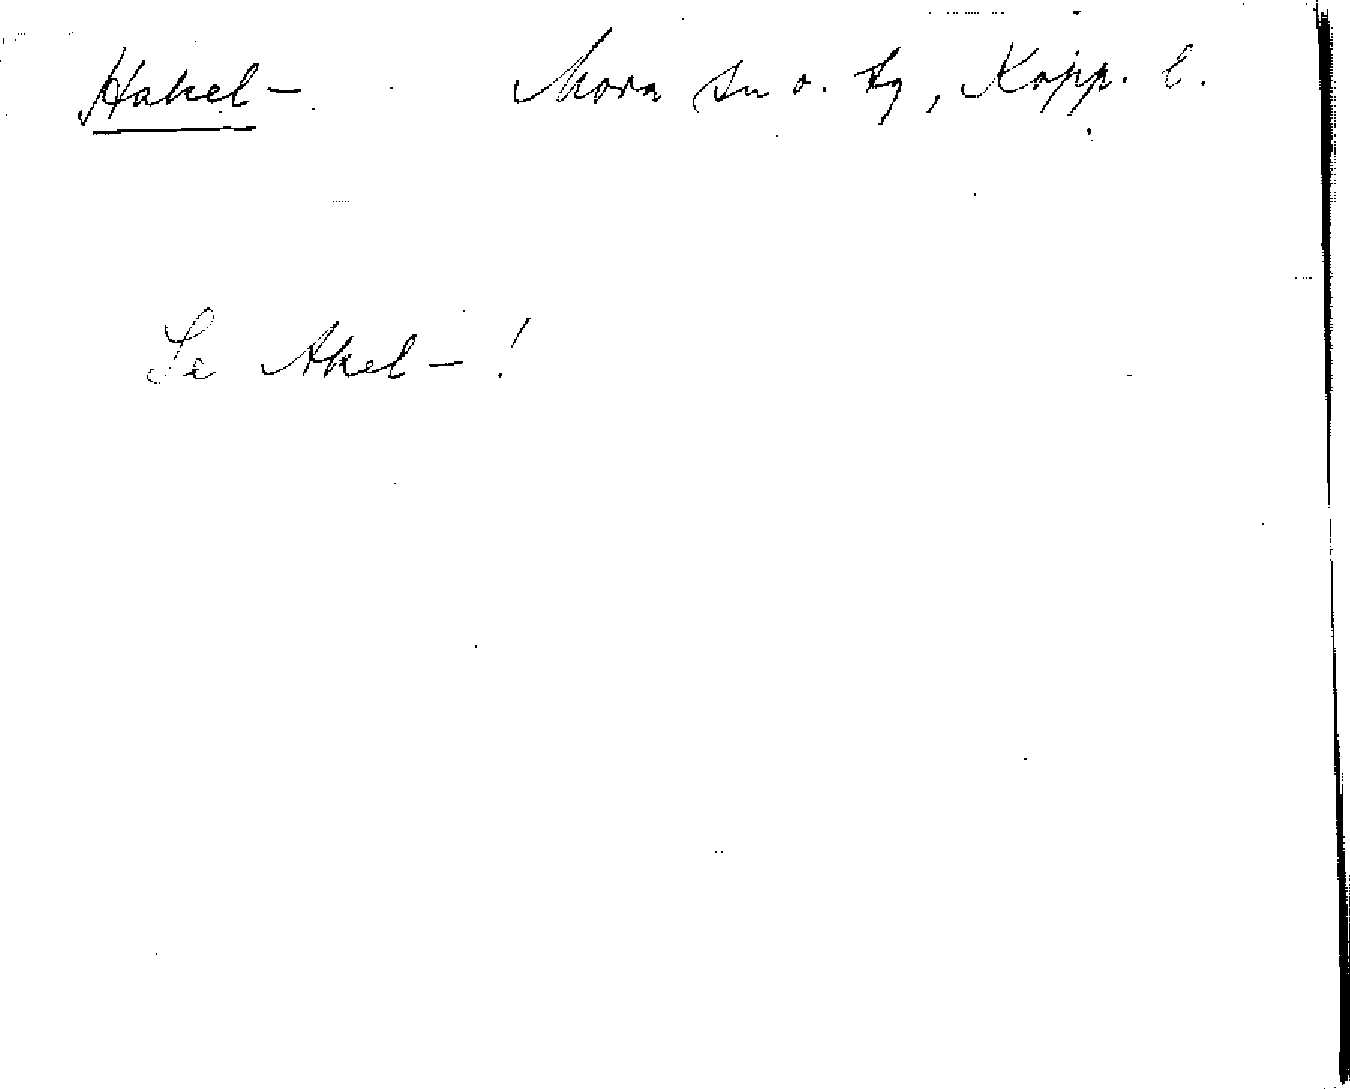 Hakel- Mora sn o. tg, Kopp. l.
Se Akel-!